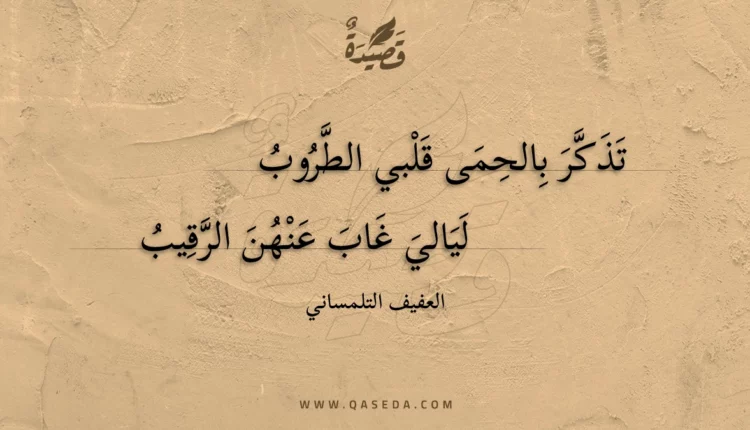 قَصِيْدَةٌ
تَذَكَّرَ بِالحِمَى قَلْبي الطَّرُوبُ
لَيَاليَ غَابَ عَنْهُنَ الرَّقِيبُ
العفيف التلمساني
WWW.QASEDA.COM